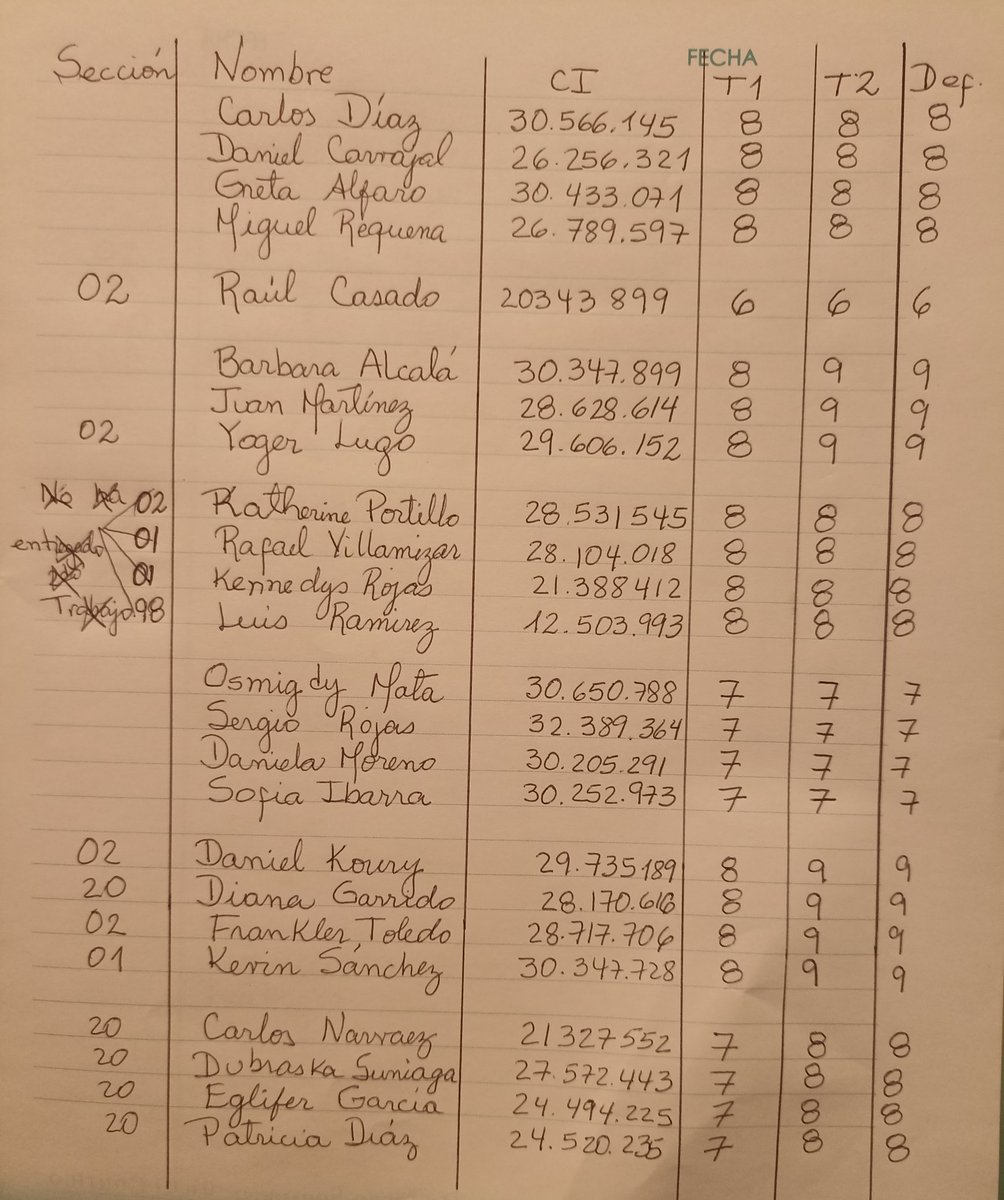 FECHA
Sección Nombre CI T1 T2 Def.
Carlos Díaz 30.566.145 8 8 8
Daniel Carvajal 26.256.321 8 8 8
Greta Alfaro 30.433.071 8 8 8
Miguel Requena 26.789.597 8 8 8
02 Raúl Casado 20343 899 6 6 6
Barbara Alcalá 30.347.899 8 9 9
Juan Martínez 28.628.614 8 9 9
02 Yoger Lugo 29.606.152 8 9 9
No ha 02 Katherine Portillo 28.531545 8 8 8
entregado 01 Rafael Villamizar 28.104.018 8 8 8
01 Kennedys Rojas 21.388412 8 8 8
Trabajo 98 Luis Ramirez 12.503.993 8 8 8
Osmigdy Mata 30.650.788 7 7 7
Sergio Rojas 32.389.364 7 7 7
Daniela Moreno 30.205.291 7 7 7
Sofia Ibarra 30.252.973 7 7 7
02 Daniel Koury 29.735189 8 9 9
20 Diana Garrido 28.170.616 8 9 9
02 Frankler Toledo 28.717.706 8 9 9
01 Kevin Sánchez 30.347.728 8 9 9
20 Carlos Narvaez 21327552 7 8 8
20 Dubraska Suniaga 27.572.443 7 8 8
20 Eglifer García 24.494.225 7 8 8
20 Patricia Diáz 24.520.235 7 8 8